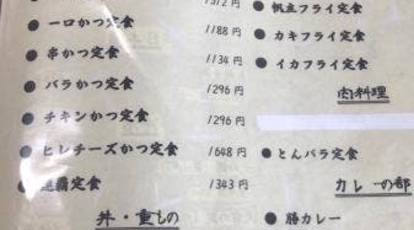 1572 円
● 一口かつ定食 1188 円
● 串かつ定食 1134 円
● バラかつ定食 1296 円
● チキンかつ定食 1296 円
● ヒレチーズかつ定食 1648 円
定食 1343 円
丼・重もの
● 帆立フライ定食
● カキフライ定食
● イカフライ定食
肉料理
● とんバラ定食
カレーの部
● 勝カレー